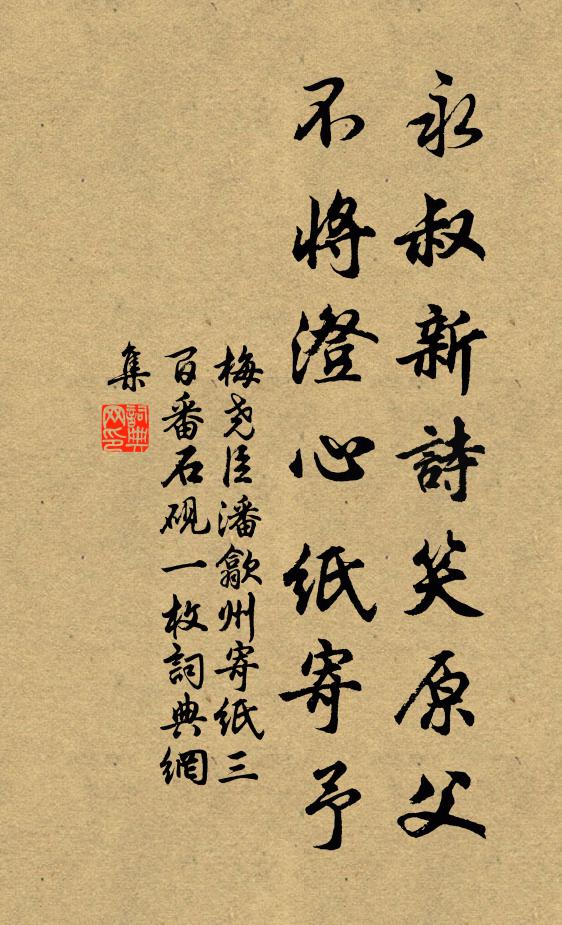 永叔新詩笑原父
不將澄心紙寄予
梅堯臣潘歙州寄紙三
百番石硯一枚詞典網
集
詞典網印